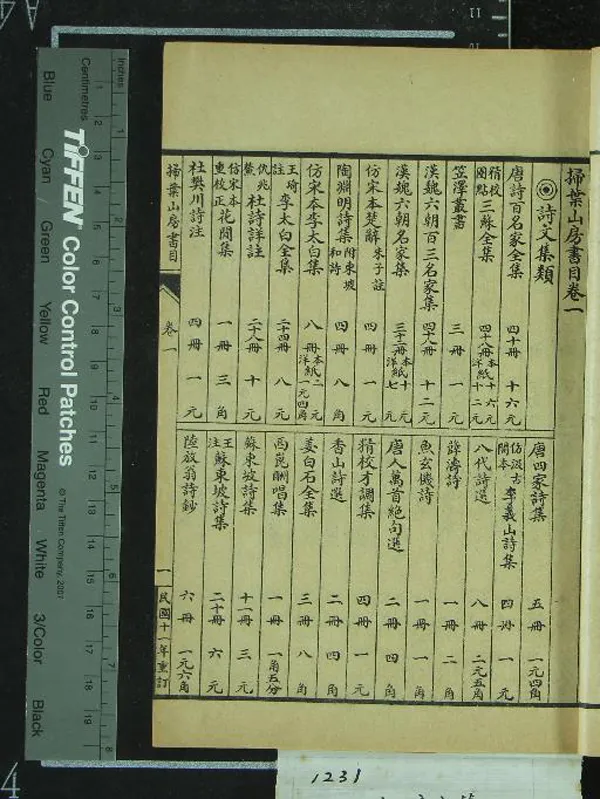 掃葉山房書目卷一
詩文集類
唐詩百名家全集 四十冊 十六元
精校圈點 三蘇全集 四十八冊 本紙十六元 洋紙十二元
笠澤叢書 三冊 一元
漢魏六朝百三名家集 四十八冊 十二元
漢魏六朝名家集 三十二冊 本紙十元 洋紙七元
仿宋本楚辭 朱子註 四冊 一元
陶淵明詩集 附東坡和詩 四冊 八角
仿宋本李太白集 八冊 本紙二元 洋一元四角
王琦註 李太白全集 二十四冊 八元
仇兆鰲 杜詩詳註 二十八冊 十元
仿宋本重校正 花間集 一冊 三角
杜樊川詩注 四冊 一元
唐四家詩集 五冊 一元四角
仿汲古閣本 李義山詩集 四冊 一元
八代詩選 八冊 二元五角
薛濤詩 一冊 二角
魚玄機詩 一冊 一角
唐人萬首絕句選 二冊 四角
精校才調集 四冊 一元
香山詩選 二冊 四角
姜白石全集 三冊 八角
西崑酬唱集 一冊 一角五分
蘇東坡詩集 十一冊 三元
王注 蘇東坡詩集 二十冊 六元
陸放翁詩鈔 六冊 一元六角
掃葉山房書目 卷一 一 民國十一年重訂
Inches
Centimetres
TIFFEN Color Control Patches
© The Tiffen Company, 2007
Blue Cyan Green Yellow Red Magenta White 3/Color Black
1231
A4